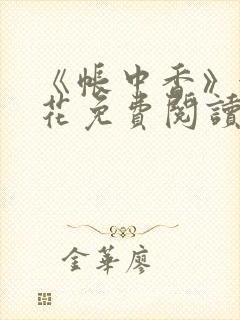 《帳中香》
花免費閱讀
金華廖